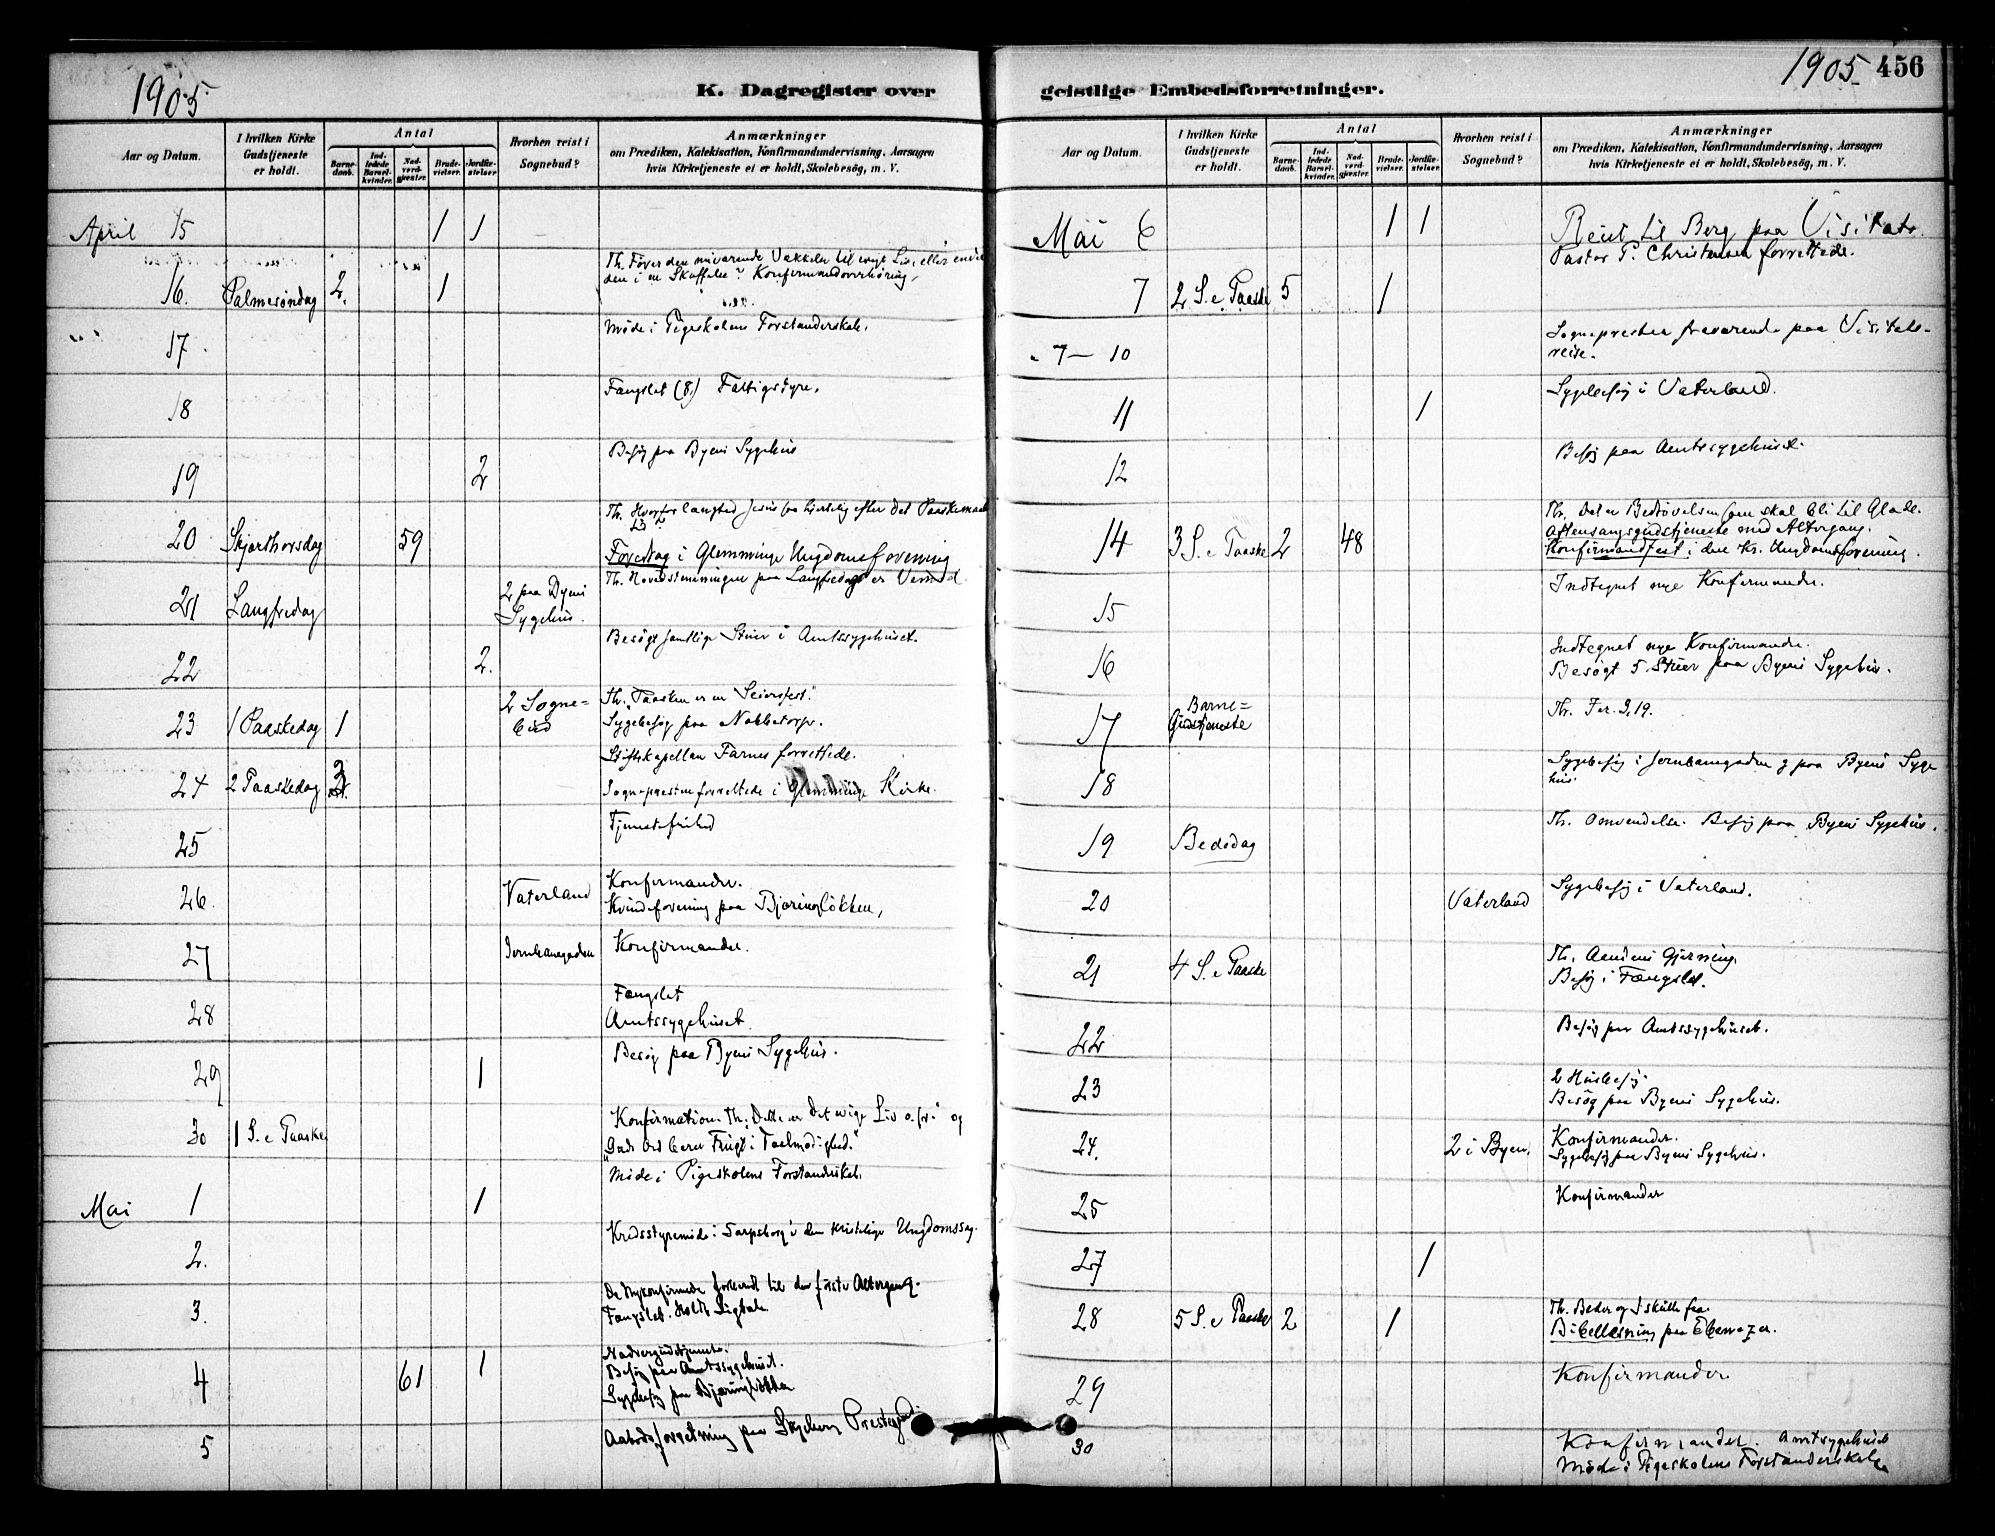 1905
K. Dagregister over
Aar og Datum.
I hvilken Kirke Gudstjeneste er holdt.
Antal
Barnedaab.
Indledede Barselkvinder.
Nadverdgjester.
Brudevielser.
Jordfæstelser
Hvorhen reist i Sognebud?
Anmærkninger
om Prædiken, Katekisation, Konfirmandundervisning, Aarsagen
hvis Kirketjeneste ei er holdt, Skolebesøg, m. V.
April 15 1 1
16. Palmesøndag 2. 1
den i en Skuffelse? Konfirmandoverhøring.
17 Møde i Pigeskolens Forstanderskab.
18 Fængslet (8) Fattigstyre.
19 2 Besøg paa Byens Sygehus
20 Skjærthorsdag 59 Th. Hvorfor længted Jesus saa hjertelig efter det Paaskemaal
Foredrag i Glemminge Ungdomsforening
21 Langfredag 2 paa Byens Sygehus. Th. Hovedstemningen paa Langfredag er Vemod.
22 2. Besøgt samtlige Stuer i Amtssygehuset.
23 1 Paaskedag 1 2 Sognebud Th. "Paasken er en Seiersfest."
Sygebesøg paa Nabbetorp.
24 2 Paaskedag Stiftskapellan Farnes forrettede.
Sognepresten forrettede i Glemminge Kirke.
25 Tjenestefrihed
26. Vaterland Konfirmander.
Kvindeforening paa Bjørneløkken,
27 Jernbanegaden Konfirmander.
28 Fængslet
Amtssygehuset.
29 1 Besøg paa Byens Sygehus.
30 1 S. e Paaske Konfirmation. Th. Dette er det evige Liv o.s.v." og
"Guds Ord bærer Frugt i Taalmodighed."
Mai 1 1 Møde i Pigeskolens Forstanderskab.
2. Kredsstyremøde i Sarpsborg i den kristelige Ungdomssag.
3. De nykonfirmede forberedt til den første Altergang.
Fængslet.
4 61 1
Besøg paa Amtssygehuset.
Sygebesøg paa
5 Aabodsforretning paa
1905 456
geistlige Embedsforretninger.
Aar og Datum.
I hvilken Kirke Gudstjeneste er holdt.
Antal
Barnedaab.
Indledede Barselkvinder.
Nadverdgjester.
Brudevielser.
Jordfæstelser.
Hvorhen reist i Sognebud?
Anmærkninger
om Prædiken, Katekisation, Konfirmandundervisning, Aarsagen
hvis Kirketjeneste ei er holdt, Skolebesøg, m. V.
Mai 6 1 1 Reist til Berg paa Visitats.
Pastor P. Christensen forrettede.
7 2 S. e Paaske 5 1
7—10 Sognepresten fraværende paa Visitats-
reise.
11 1 Sygebesøg i Vaterland.
12 Besøg paa Amtssygehuset.
14 3 S. e Paaske 2 48 Th. Det er Bedrøvelsen som skal bli til Glæde.
Aftensangsgudstjeneste med Altergang.
Konfirmandfest i den kr. Ungdomsforening.
15 Indtegnet nye Konfirmander.
16 Indtegnet nye Konfirmander.
Besøgt 5 Stuer paa Byens Sygehus.
17 Barne=
Gudstjeneste Th. Jer. 3,19.
18 Sygebesøg i Jernbanegaden og paa Byens Syge
hus.
19 Bededag Th. Omvendelse. Besøg paa Byens Sygehus.
20 Vaterland Sygebesøg i Vaterland.
21 4 S. e Paaske Th. Aandens Gjerning.
Besøg i Fængslet.
22 Besøg paa Amtssygehuset.
23 2 Husbesøg.
Besøg paa Byens Sygehus.
24. 2 i Byen. Konfirmander.
Sygebesøg paa Byens Sygehus.
25 Konfirmander
27 1
28 5 S. e Paaske 2 1 Th. Beder og I skulle faa.
Bibellæsning paa Ebenezer.
29 Konfirmander.
30 Konfirmander. Amtssygehuset
Møde i Pigeskolens Forstanderskab